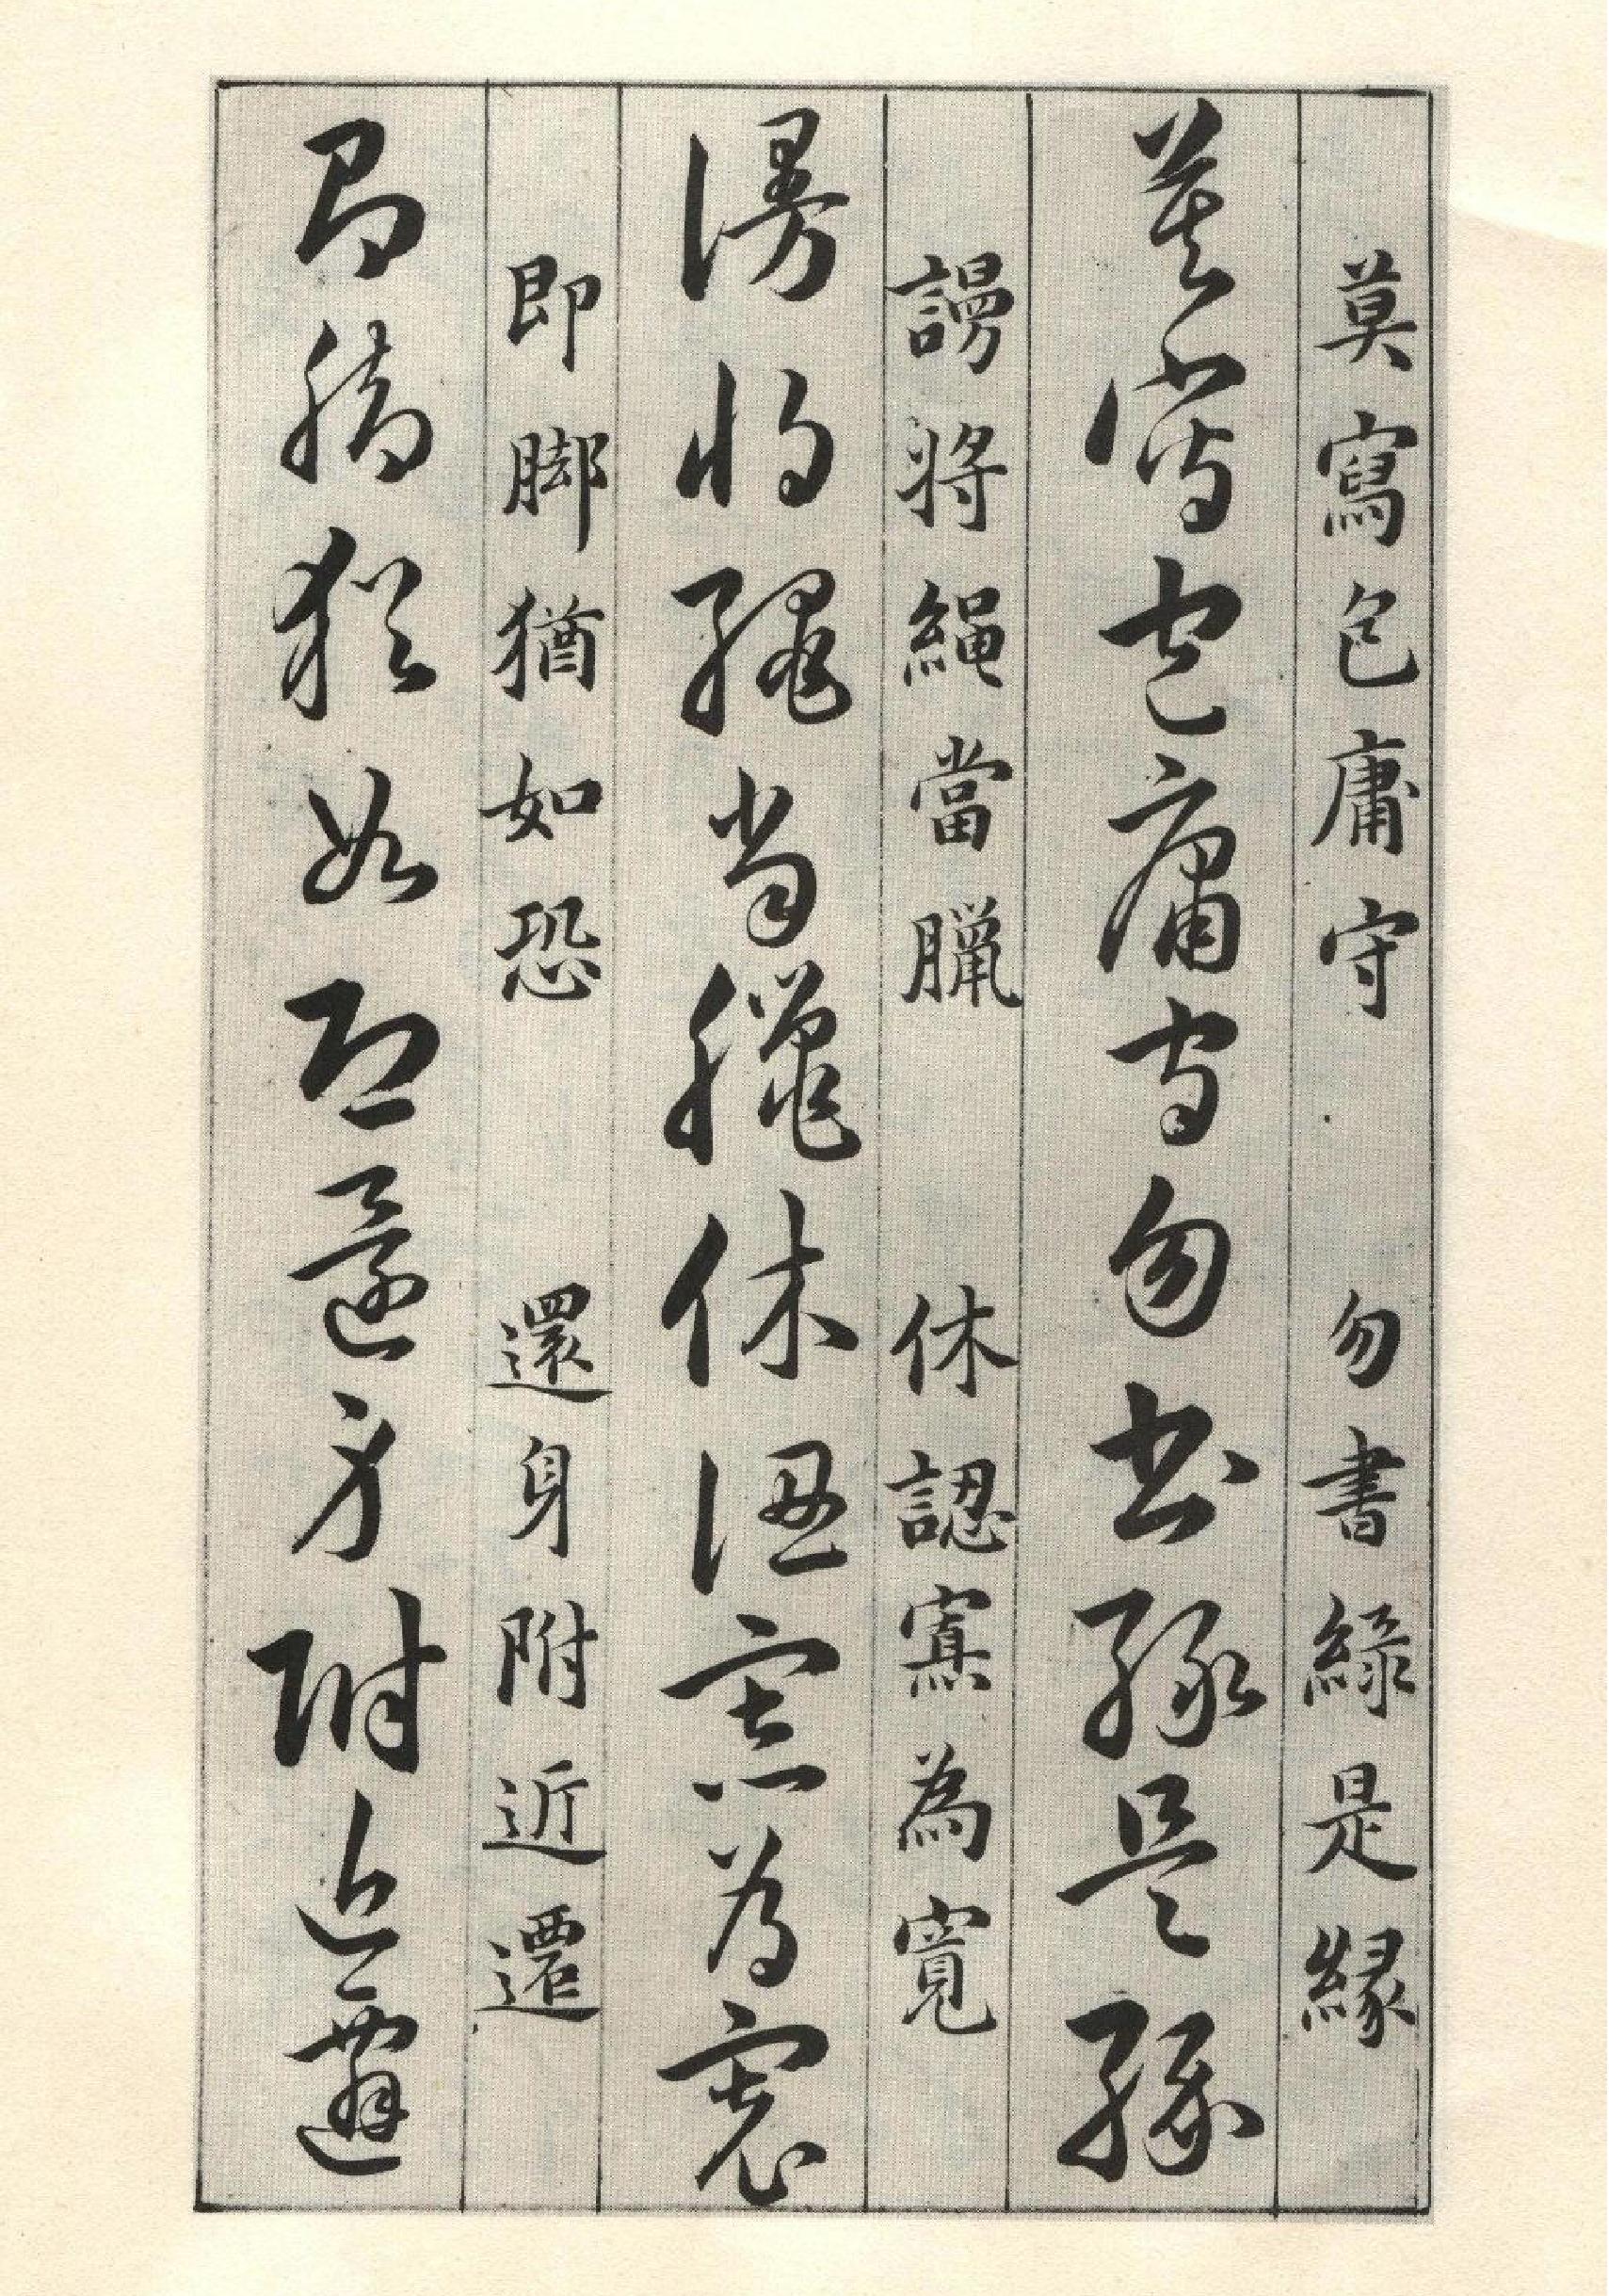 莫寫包庸守　勿書綠是緣
莫寫包庸守勿書綠是緣
謾將繩當臘　休認寡為寬
謾將繩當臘休認寡為寬
即脚猶如恐　還身附近遷
即脚猶如恐還身附近遷